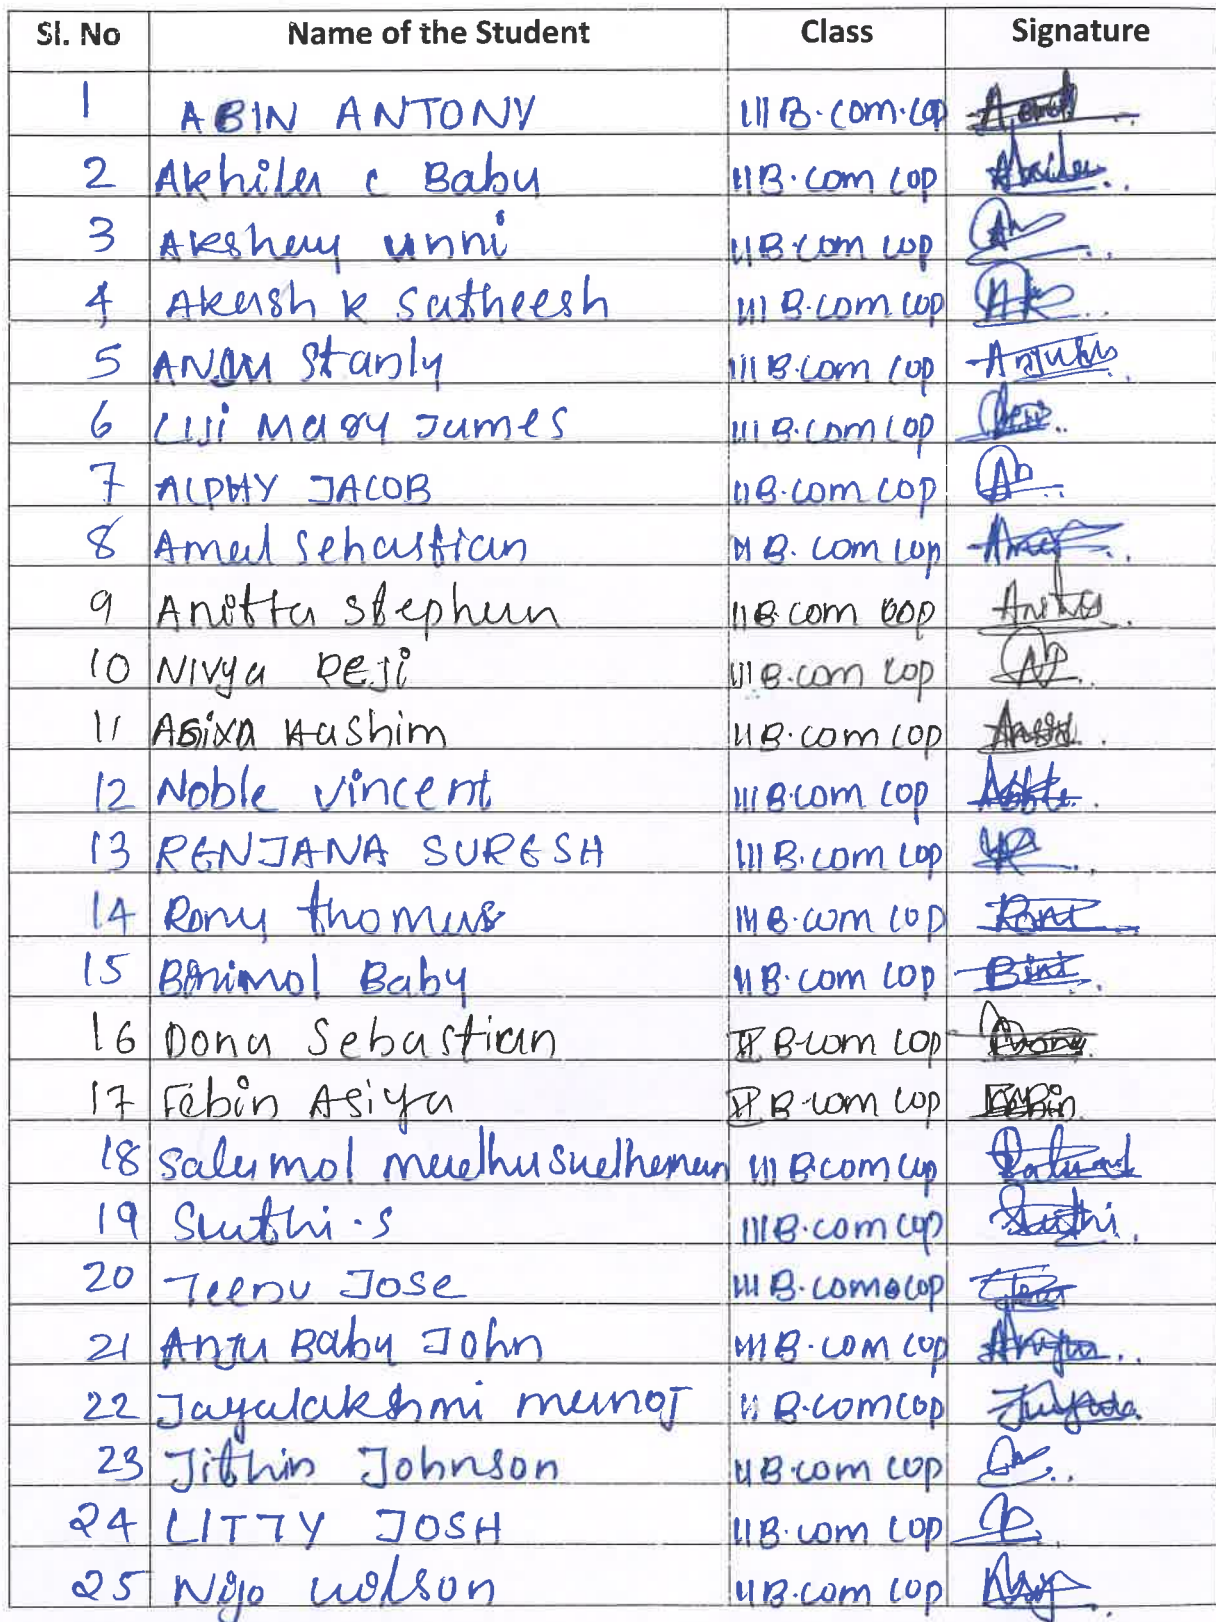 Sl. No Name of the Student Class Signature
1 ABIN ANTONY III B.com.cop
2 Akhila c Baby II B.com cop
3 Akshay unni II B.com cop
4 Akash k Satheesh III B.com cop
5 ANJU Stanly III B.com cop Anju
6 LIJI Mary James III B.com cop
7 ALPHY JACOB II B.com cop
8 Amal Sebastian II B.com cop
9 Anitta Stephan II B.com cop Anitta
10 Nivya Reji III B.com cop
11 Asixa Hashim II B.com cop
12 Noble vincent III B.com cop Noble
13 RENJANA SURESH III B.com cop
14 Rony thomas III B.com cop Rony
15 Binimol Baby II B.com cop Bini
16 Dona Sebastian II B.com cop Dona
17 Febin Asiya II B.com cop Febin
18 Salumol madhusudhanan III B.com cop
19 Sruthi.S III B.com cop Sruthi
20 Teenu Jose III B.com cop
21 Anju Baby John III B.com cop
22 Jayalakshmi manoj II B.com cop
23 Jithin Johnson II B.com cop
24 LITTY JOSH II B.com cop
25 Nijo wilson II B.com cop